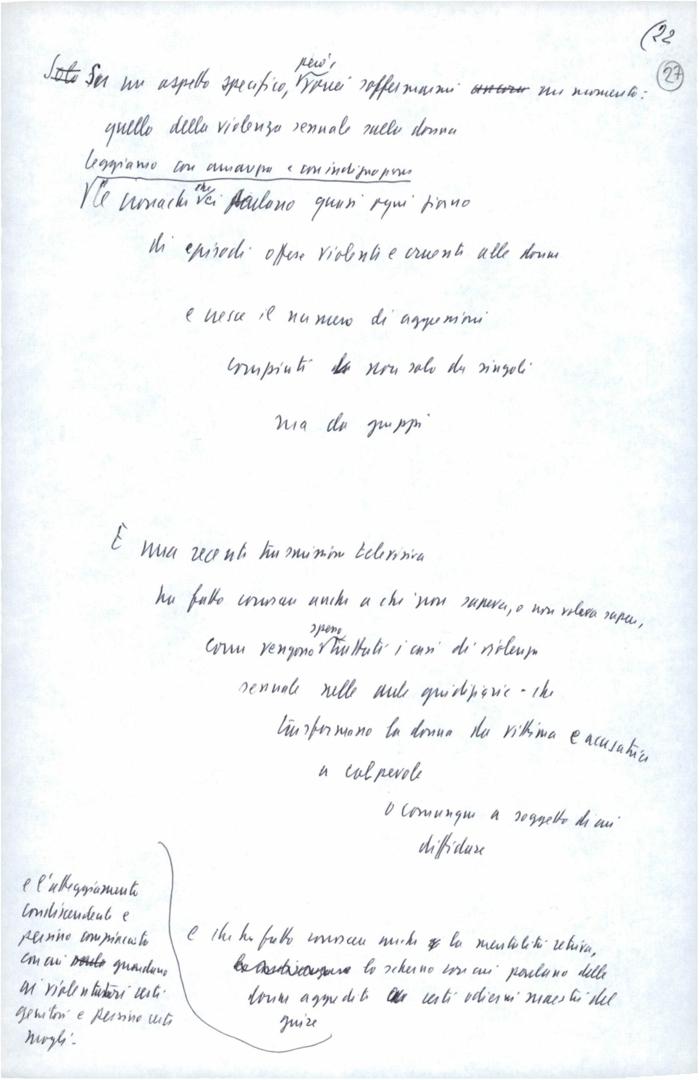 (22
27
però
Solo Su un aspetto specifico, vorrei soffermarmi ancora un momento:
quello della violenza sessuale sulla donna
leggiamo con amarezza e con indignazione
Le cronache che ci parlano quasi ogni giorno
di episodi offese violenti e cruenti alle donne
e cresce il numero di aggressioni
compiuti da non solo da singoli
ma da gruppi
E una recente trasmissione televisiva
ha fatto conoscere anche a chi non sapeva, o non voleva sapere,
spesso
come vengono trattati i casi di violenza
sessuale nelle aule giudiziarie - che
trasformano la donna da vittima e accusatrice
a colpevole
o comunque a soggetto di cui
diffidare
e che ha fatto conoscere anche la mentalità retriva,
lo scherno con cui parlano delle
donne aggredite certi odierni maestri del
giure
e l'atteggiamento
condiscendente e
persino compiaciuto
con cui guardano
ai violentatori certi
genitori e persino certe
mogli.